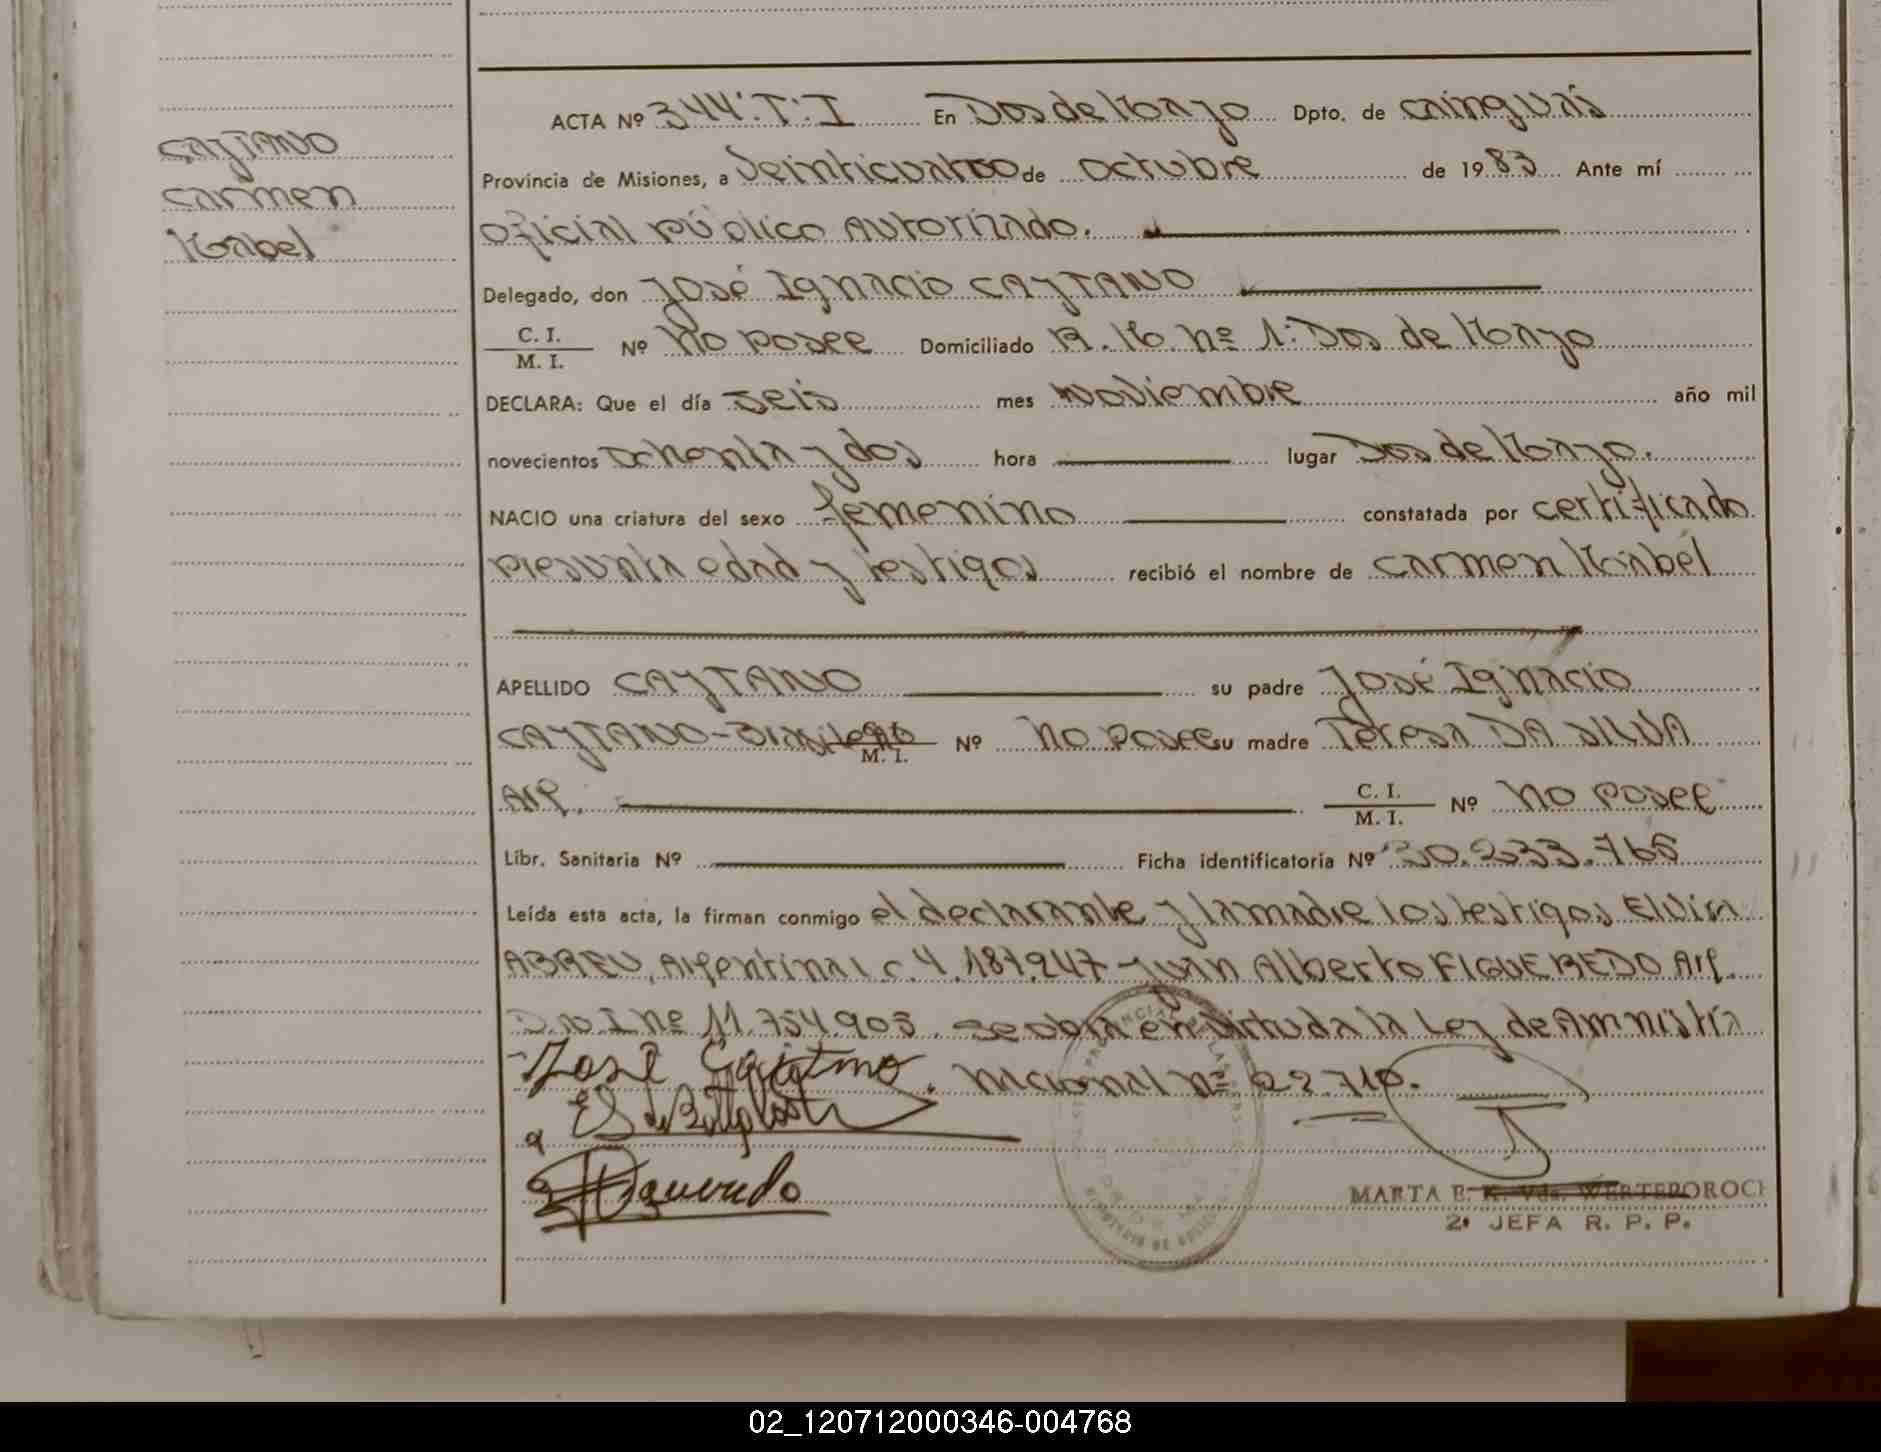 CAYTANO
Carmen
Mabel
ACTA Nº 344: T: I En Dos de Mayo Dpto. de Cainguás
Provincia de Misiones, a veinticuatro de octubre de 1983 Ante mí
oficial público autorizado.
Delegado, don José Ignacio CAYTANO
C. I.
M. I. Nº No posee Domiciliado B. M. nº 1: Dos de Mayo
DECLARA: Que el día seis mes noviembre año mil
novecientos ochenta y dos hora lugar Dos de Mayo.
NACIO una criatura del sexo femenino constatada por certificado
presunta edad y testigos recibió el nombre de Carmen Mabel
APELLIDO CAYTANO su padre José Ignacio
CAYTANO - Brasilero M. I. Nº No posee su madre Teresa DA SILVA
Arg. C. I.
M. I. Nº No posee
Libr. Sanitaria Nº Ficha identificatoria Nº 30.233.766
Leída esta acta, la firman conmigo el declarante y la madre los testigos Elvira
ABREU, Argentina l c. 4.187.247 - Juan Alberto FIGUEREDO Arg.
D N I nº 11.754.905. se obra en virtud a la Ley de Amnistía
José Caitano. nacional nº 22.710.
MARTA E. K. Vda. WERTEPOROCH
2ª JEFA R. P. P.
02_120712000346-004768